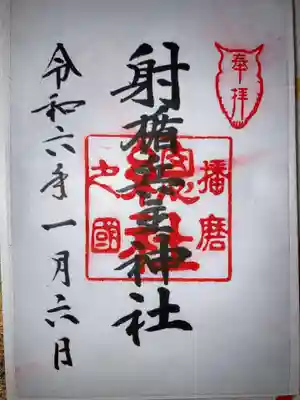 奉拝
播磨
射楯兵主神社
之國
令和六年一月六日